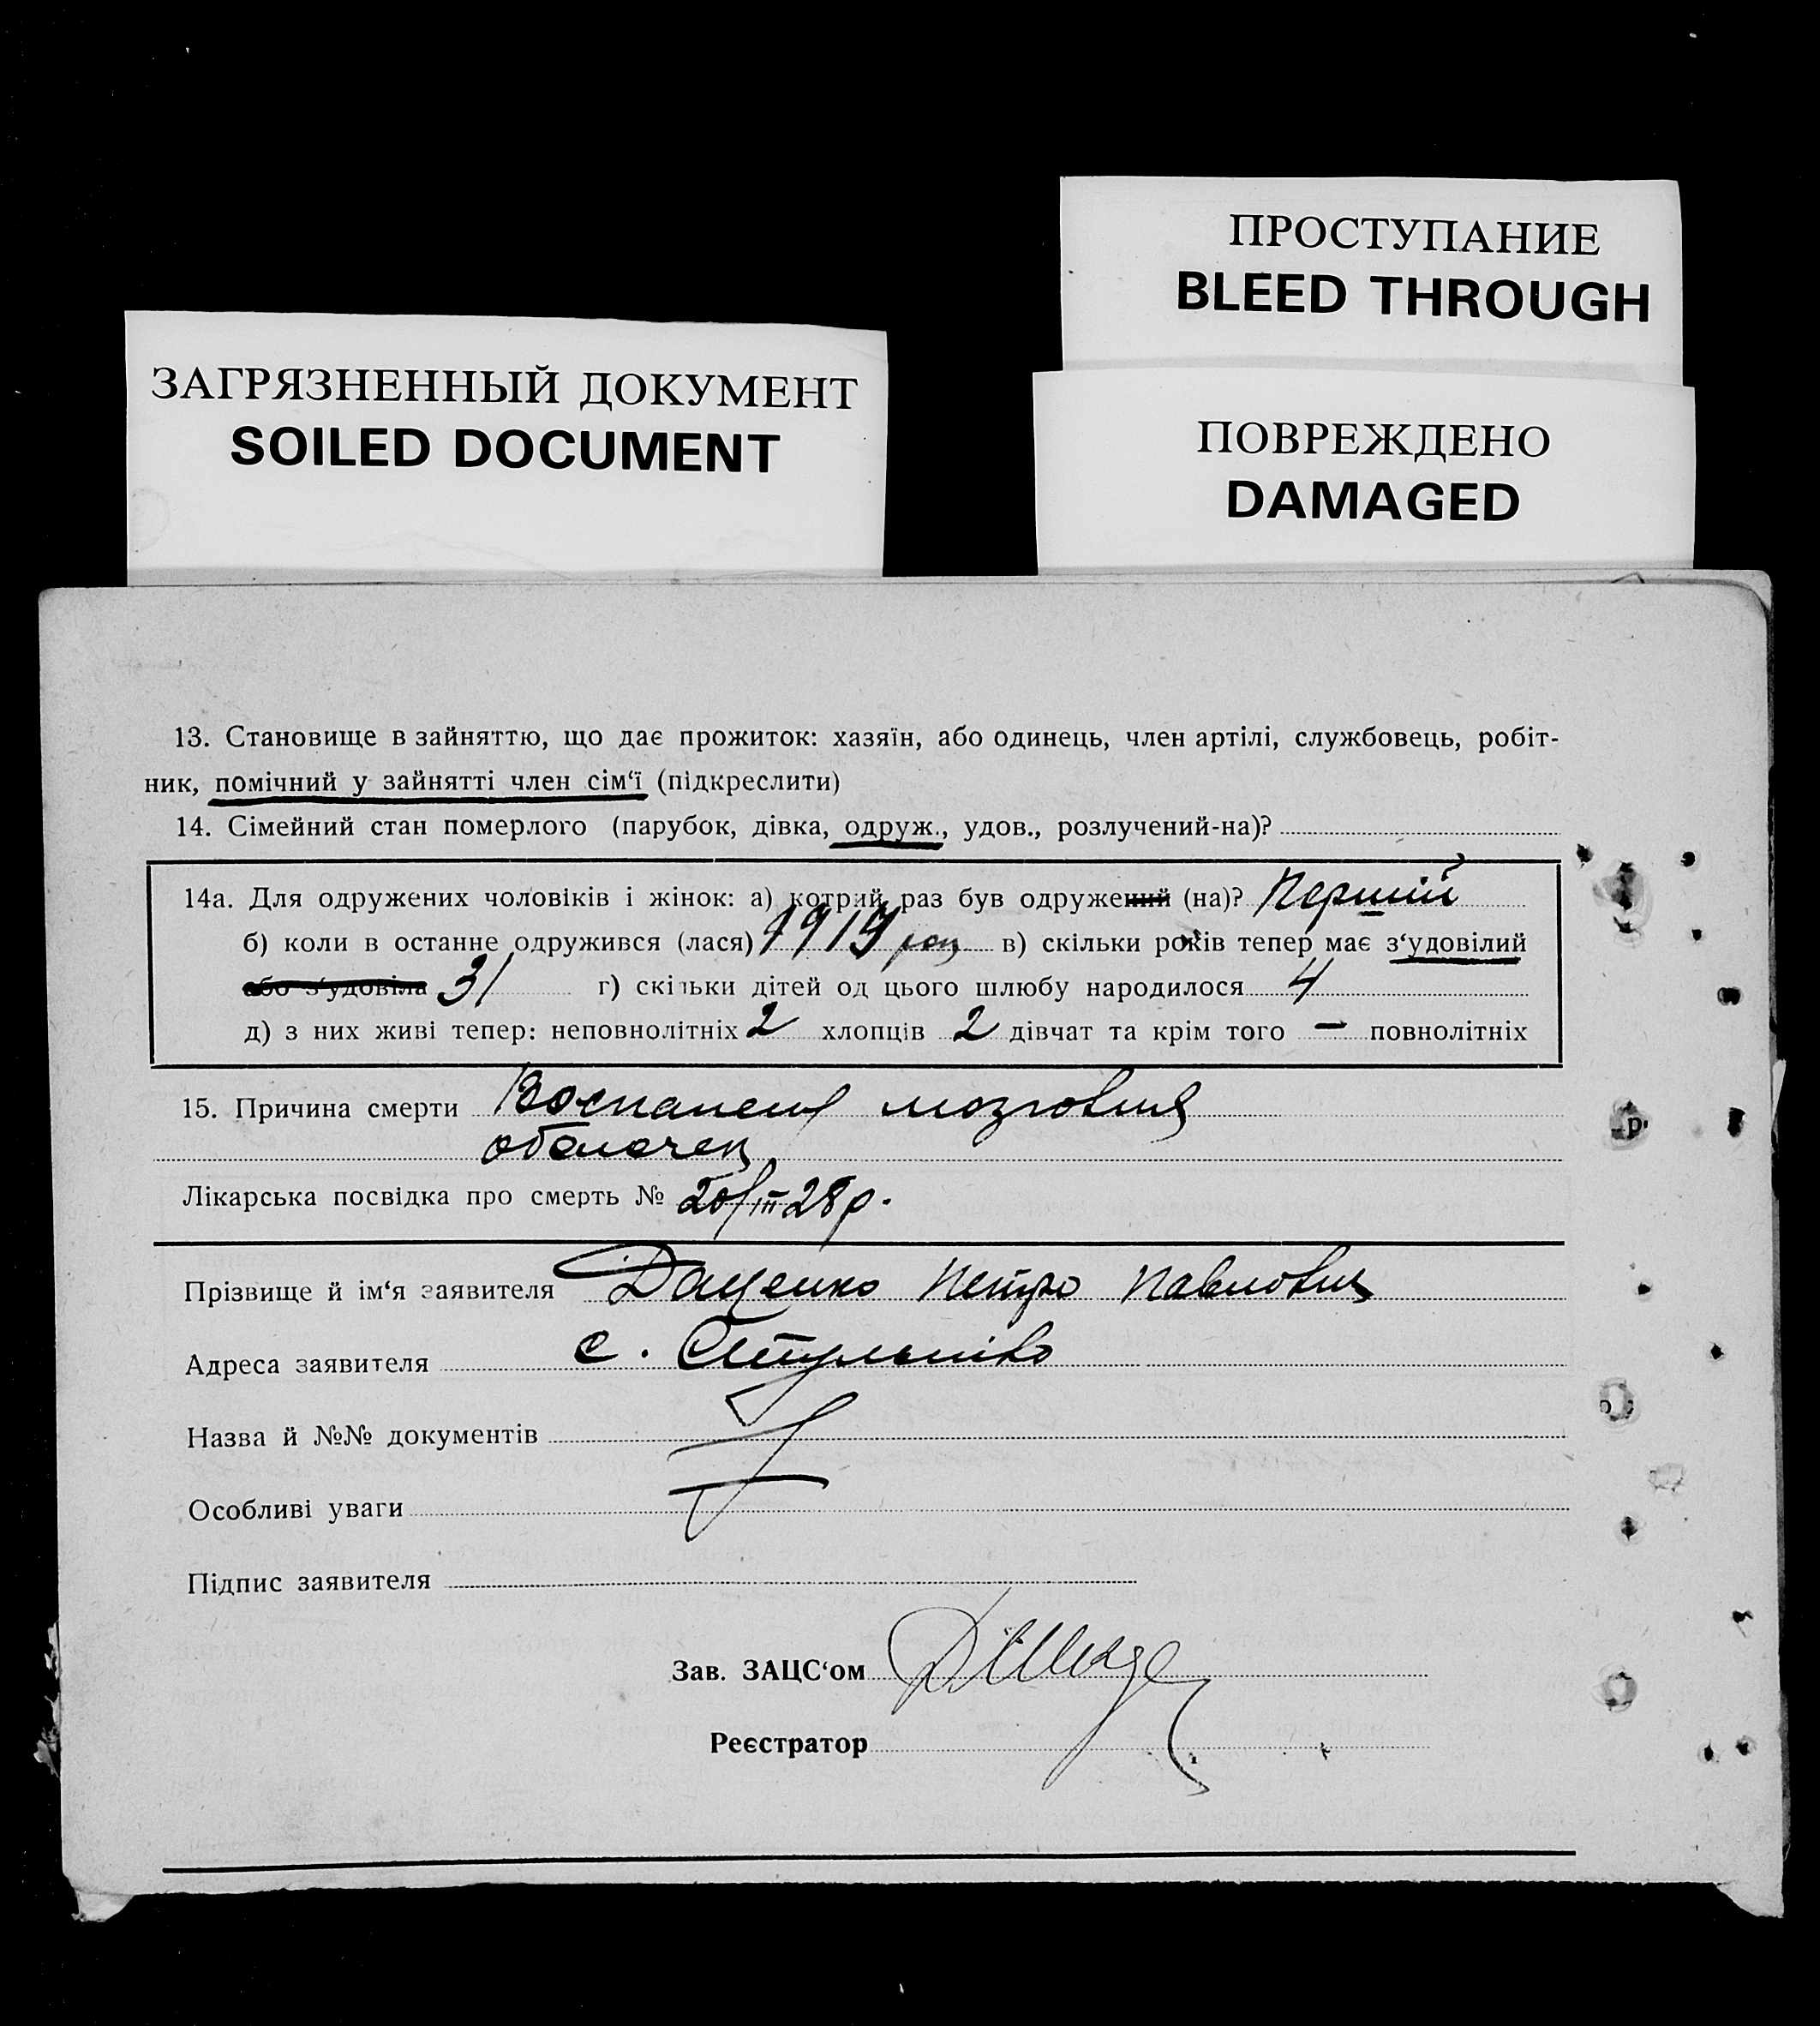 ПРОСТУПАНИЕ
BLEED THROUGH
ЗАГРЯЗНЕННЫЙ ДОКУМЕНТ
SOILED DOCUMENT
ПОВРЕЖДЕНО
DAMAGED
13. Становище в зайняттю, що дає прожиток: хазяїн, або одинець, член артілі, службовець, робіт-
ник, помічний у зайнятті член сім‘ї (підкреслити)
14. Сімейний стан померлого (парубок, дівка, одруж., удов., розлучений-на)?
14а. Для одружених чоловіків і жінок: а) котрий раз був одружений (на)? Перший
б) коли в останне одружився (лася) 1919 року в) скільки років тепер має з‘удовілий
або з‘удовіла 31 г) скільки дітей од цього шлюбу народилося 4
д) з них живі тепер: неповнолітніх 2 хлопців 2 дівчат та крім того — повнолітніх
15. Причина смерти Воспаления мозговых
оболочек
Лікарська посвідка про смерть № 20/III 28 р.
Прізвище й ім‘я заявителя Даценко Петро Павлович
Адреса заявителя с.
Назва й №№ документів
Особливі уваги
Підпис заявителя
Зав. ЗАЦС‘ом
Реєстратор